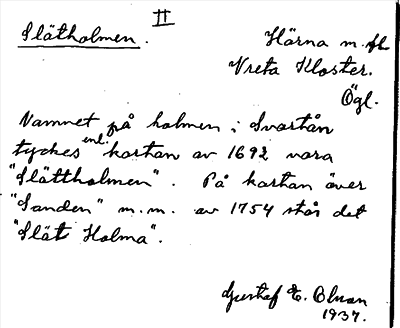 II
Slätholmen.
Härna m. fl.
Vreta Kloster.
Ögl.
Namnet på holmen i Svartån
tyckes enl. kartan av 1692 vara
"Slättholmen". På kartan över
"Sanden" m.m. av 1754 står det
"Slät Holma".
Gustaf E. Olsson
1937.